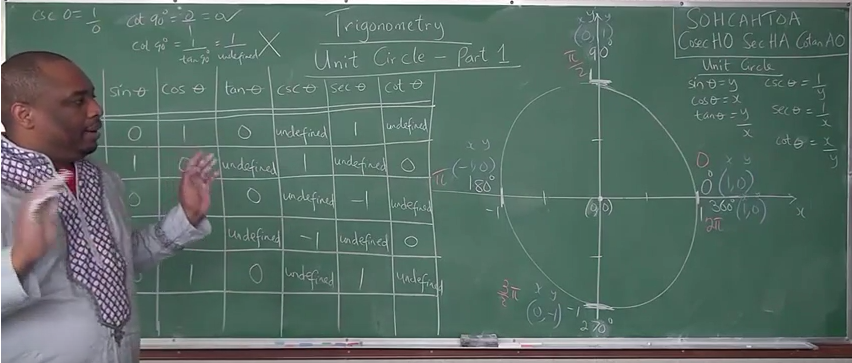 csc 0 = 1/0
cot 90° = 0/1 = 0 ✓
cot 90° = 1/tan 90° = 1/undefined ✗
Trigonometry
Unit Circle - Part 1
SOHCAHTOA
Cosec HO Sec HA Cotan AO
Unit Circle
sin θ = y csc θ = 1/y
cos θ = x sec θ = 1/x
tan θ = y/x cot θ = x/y
sin θ cos θ tan θ csc θ sec θ cot θ
0 1 0 undefined 1 undefined
1 0 undefined 1 undefined 0
0 0 undefined -1 undefined
undefined -1 undefined 0
1 0 undefined 1 undefined
x y y
(0, 1)
π/2 90°
1
x y
(-1, 0)
π 180°
-1
(0,0)
0 x y
0° (1, 0)
360° (1, 0)
1 2π x
3/2 π x y
(0, -1) -1
270°